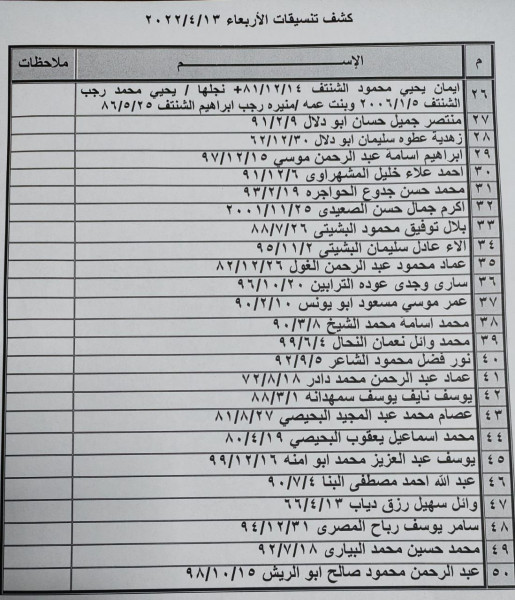 كشف تنسيقات الأربعاء ٢٠٢٢/٤/١٣
م الإســـم ملاحظات
٢٦ ايمان يحيي محمود الشنتف ٨١/١٢/١٤+ نجلها / يحيي محمد رجب
الشنتف ٢٠٠٦/١/٥ وبنت عمه /منيره رجب ابراهيم الشنتف ٨٦/٥/٢٥
٢٧ منتصر جميل حسان ابو دلال ٩١/٢/٩
٢٨ زهدية عطوه سليمان ابو دلال ٦٢/١٢/٣٠
٢٩ ابراهيم اسامه عبد الرحمن موسي ٩٧/١٢/١٥
٣٠ احمد علاء خليل المشهراوى ٩١/١٢/٦
٣١ محمد حسن جدوع الحواجره ٩٣/٢/١٩
٣٢ اكرم جمال حسن الصعيدى ٢٠٠١/١١/٢٥
٣٣ بلال توفيق محمود البشيتى ٨٨/٧/٢٦
٣٤ الاء عادل سليمان البشيتى ٩٥/١١/٢
٣٥ عماد محمود عبد الرحمن الغول ٨٢/١٢/٢٦
٣٦ سارى وجدى عوده الترابين ٩٦/١٠/٢٠
٣٧ عمر موسي مسعود ابو يونس ٩٠/٢/١٠
٣٨ محمد اسامه محمد الشيخ ٩٠/٣/٨
٣٩ محمد وائل نعمان النحال ٩٩/٦/٤
٤٠ نور فضل محمود الشاعر ٩٢/٩/٥
٤١ عماد عبد الرحمن محمد دادر ٧٢/٨/١٨
٤٢ يوسف نايف يوسف سمهدانه ٨٨/٣/١
٤٣ عصام محمد عبد المجيد البحيصي ٨١/٨/٢٧
٤٤ محمد اسماعيل يعقوب البحيصي ٨٠/٤/١٩
٤٥ يوسف عبد العزيز محمد ابو امنه ٩٩/١٢/١٦
٤٦ عبد الله احمد مصطفى البنا ٩٠/٧/٤
٤٧ وائل سهيل رزق دياب ٦٦/٤/١٣
٤٨ سامر يوسف رباح المصرى ٩٤/١٢/٣١
٤٩ محمد حسين محمد البيارى ٩٢/٧/١٨
٥٠ عبد الرحمن محمود صالح ابو الريش ٩٨/١٠/١٥